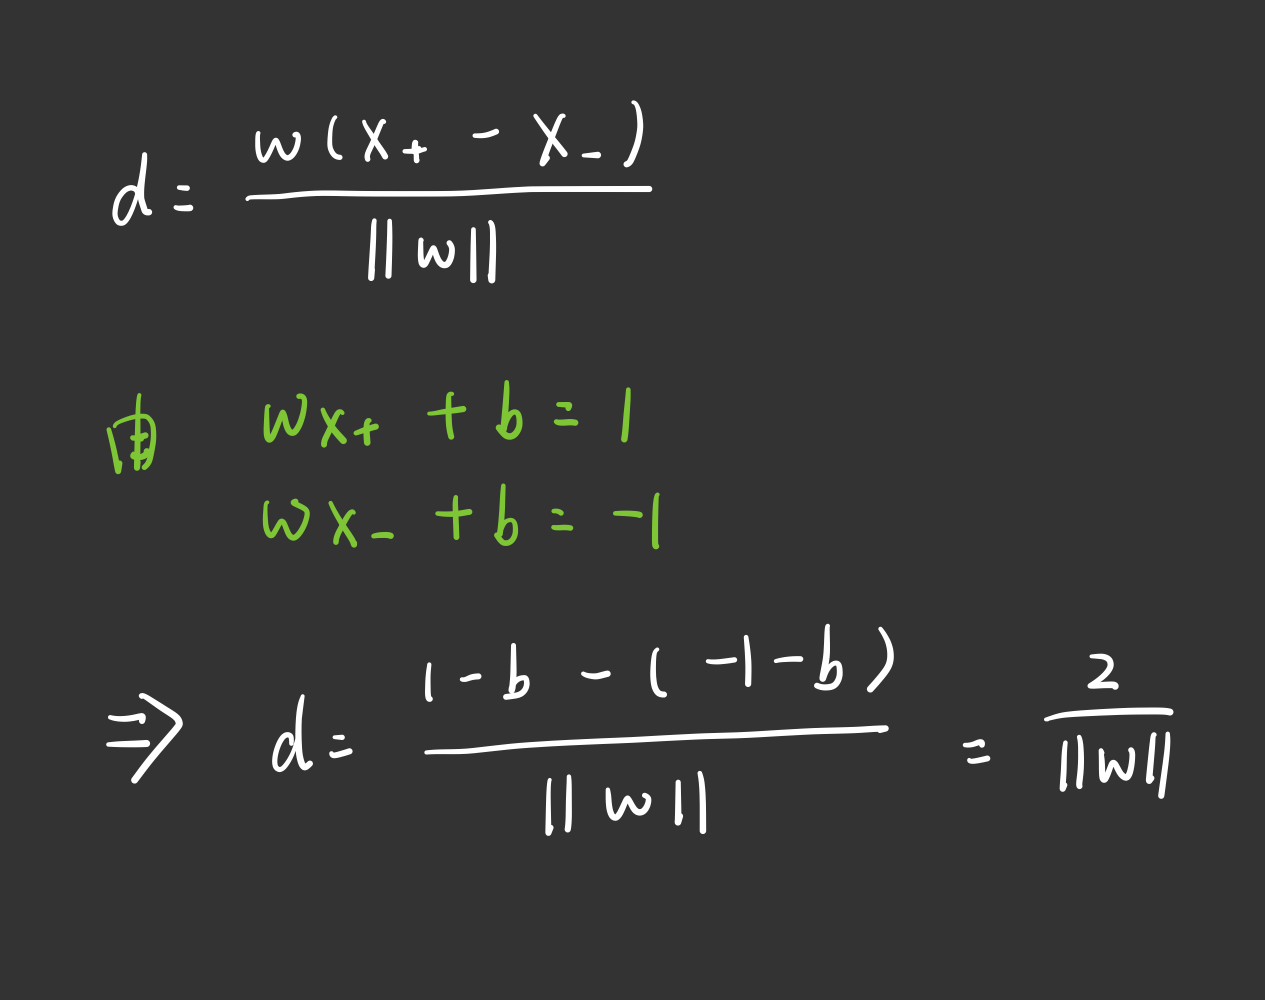 d = w(x₊ - x₋) / ||w||
由 wx₊ + b = 1
wx₋ + b = -1
⇒ d = 1-b - (-1-b) / ||w|| = 2 / ||w||